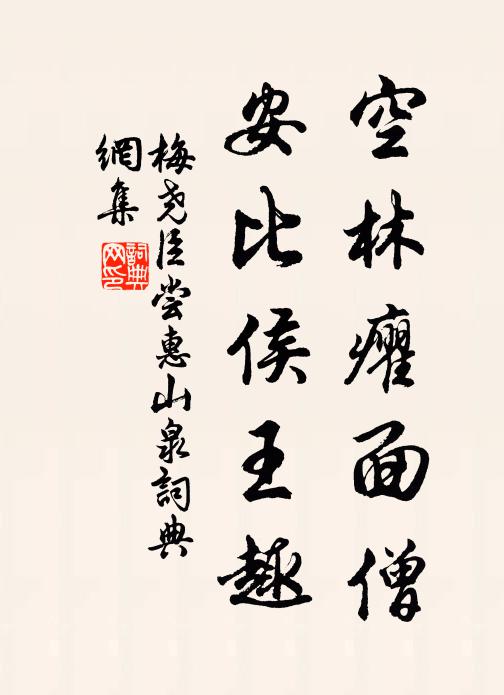 空林癯面僧
安比侯王趣
梅尧臣尝惠山泉詞典
網集
詞典
网印